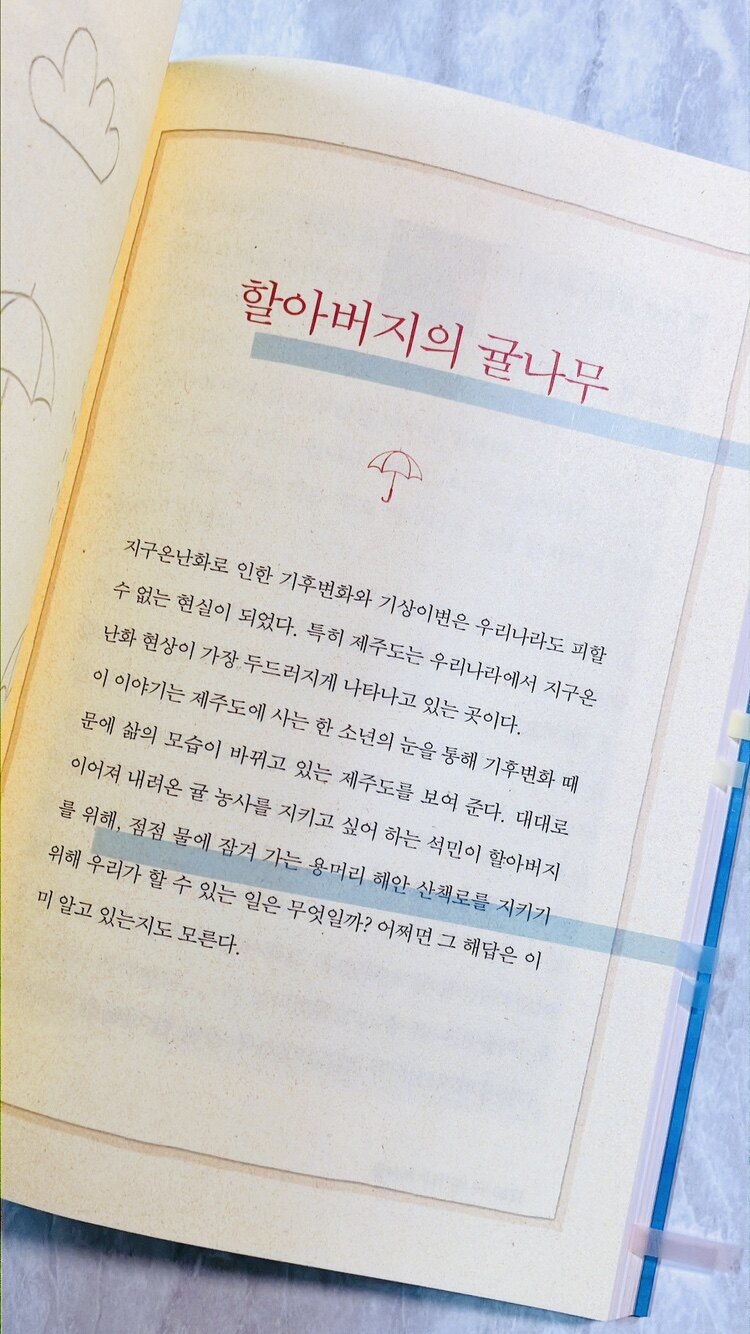 할아버지의 귤나무
지구온난화로 인한 기후변화와 기상이변은 우리나라도 피할
수 없는 현실이 되었다. 특히 제주도는 우리나라에서 지구온
난화 현상이 가장 두드러지게 나타나고 있는 곳이다.
이 이야기는 제주도에 사는 한 소년의 눈을 통해 기후변화 때
문에 삶의 모습이 바뀌고 있는 제주도를 보여 준다. 대대로
이어져 내려온 귤 농사를 지키고 싶어 하는 석민이 할아버지
를 위해, 점점 물에 잠겨 가는 용머리 해안 산책로를 지키기
위해 우리가 할 수 있는 일은 무엇일까? 어쩌면 그 해답은 이
미 알고 있는지도 모른다.